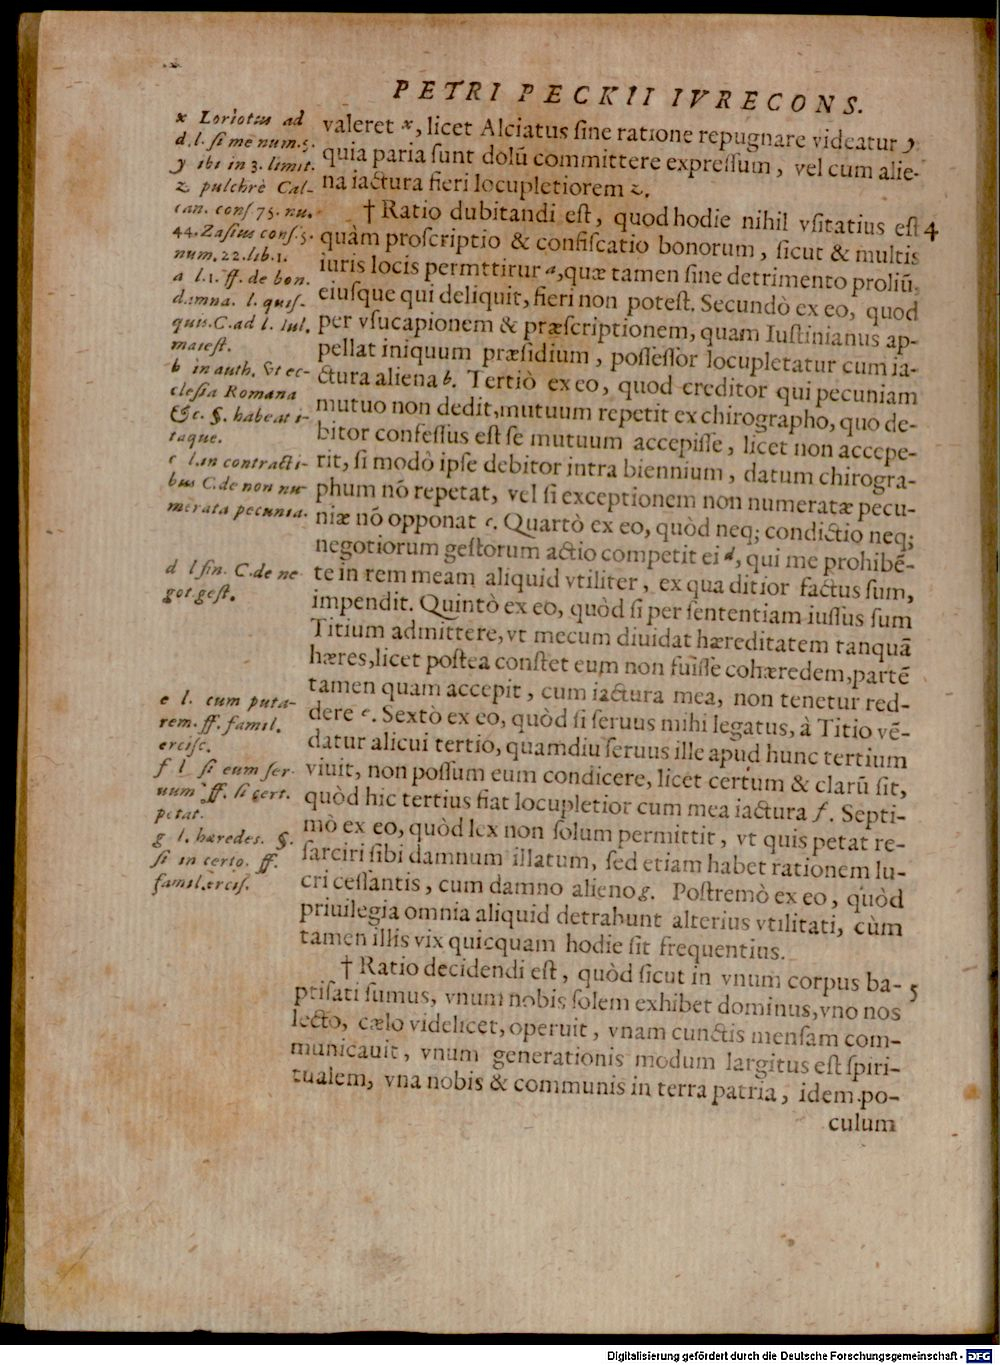 PETRI PECKII IVRECONS.
x Loriotus ad
d. l. si me num. 5.
y ibi in 3. limit.
z pulchrè Cal-
can. cons 75. nu.
44. Zasius cons. 5.
num. 22. lib. 1.
a l. 1. ff. de bon.
damna. l. quis-
quis. C. ad l. Iul.
maiest.
b in auth. vt ec-
clesia Romana
&c. §. habeat i-
taque.
c l. in contracti-
bus C. de non nu-
merata pecunia.
d l fin. C. de ne
got. gest.
e l. cum puta-
rem. ff. famil.
ercisc.
f l si eum ser-
uum ff. si cert.
petat.
g l. hæredes. §.
si in certo. ff.
famil. ercis.
valeret x, licet Alciatus sine ratione repugnare videatur y
quia paria sunt dolū committere expressum, vel cum alie-
na iactura fieri locupletiorem z.
† Ratio dubitandi est, quod hodie nihil vsitatius est 4
quàm proscriptio & confiscatio bonorum, sicut & multis
iuris locis permttirur a, quæ tamen sine detrimento proliū,
eiusque qui deliquit, fieri non potest. Secundò ex eo, quod
per vsucapionem & præscriptionem, quam Iustinianus ap-
pellat iniquum præsidium, possessor locupletatur cum ia-
ctura aliena b. Tertiò ex eo, quod creditor qui pecuniam
mutuo non dedit, mutuum repetit ex chirographo, quo de-
bitor confessus est se mutuum accepisse, licet non accepe-
rit, si modò ipse debitor intra biennium, datum chirogra-
phum nō repetat, vel si exceptionem non numeratæ pecu-
niæ nō opponat c. Quartò ex eo, quòd neq; condictio neq;
negotiorum gestorum actio competit ei d, qui me prohibē-
te in rem meam aliquid vtiliter, ex qua ditior factus sum,
impendit. Quintò ex eo, quòd si per sententiam iussus sum
Titium admittere, vt mecum diuidat hæreditatem tanquā
hæres, licet postea constet eum non fuisse cohæredem, partē
tamen quam accepit, cum iactura mea, non tenetur red-
dere e. Sextò ex eo, quòd si seruus mihi legatus, à Titio vē-
datur alicui tertio, quamdiu seruus ille apud hunc tertium
viuit, non possum eum condicere, licet certum & clarū sit,
quòd hic tertius fiat locupletior cum mea iactura f. Septi-
mò ex eo, quòd lex non solum permittit, vt quis petat re-
sarciri sibi damnum illatum, sed etiam habet rationem lu-
cri cessantis, cum damno alieno g. Postremò ex eo, quòd
priuilegia omnia aliquid detrahunt alterius vtilitati, cùm
tamen illis vix quicquam hodie sit frequentius.
† Ratio decidendi est, quòd sicut in vnum corpus ba- 5
ptisati sumus, vnum nobis solem exhibet dominus, vno nos
lecto, cælo videlicet, operuit, vnam cunctis mensam com-
municauit, vnum generationis modum largitus est spiri-
tualem, vna nobis & communis in terra patria, idem po-
culum
Digitalisierung gefördert durch die Deutsche Forschungsgemeinschaft - DFG